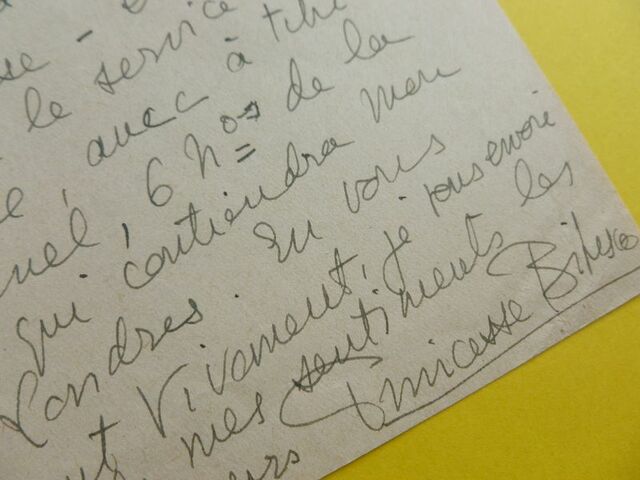 le service
avec à titre
, 6 nos de la
qui contiendra mon
Londres. En vous
vivement, je vous envoie
mes sentiments les
Princesse Bibesco